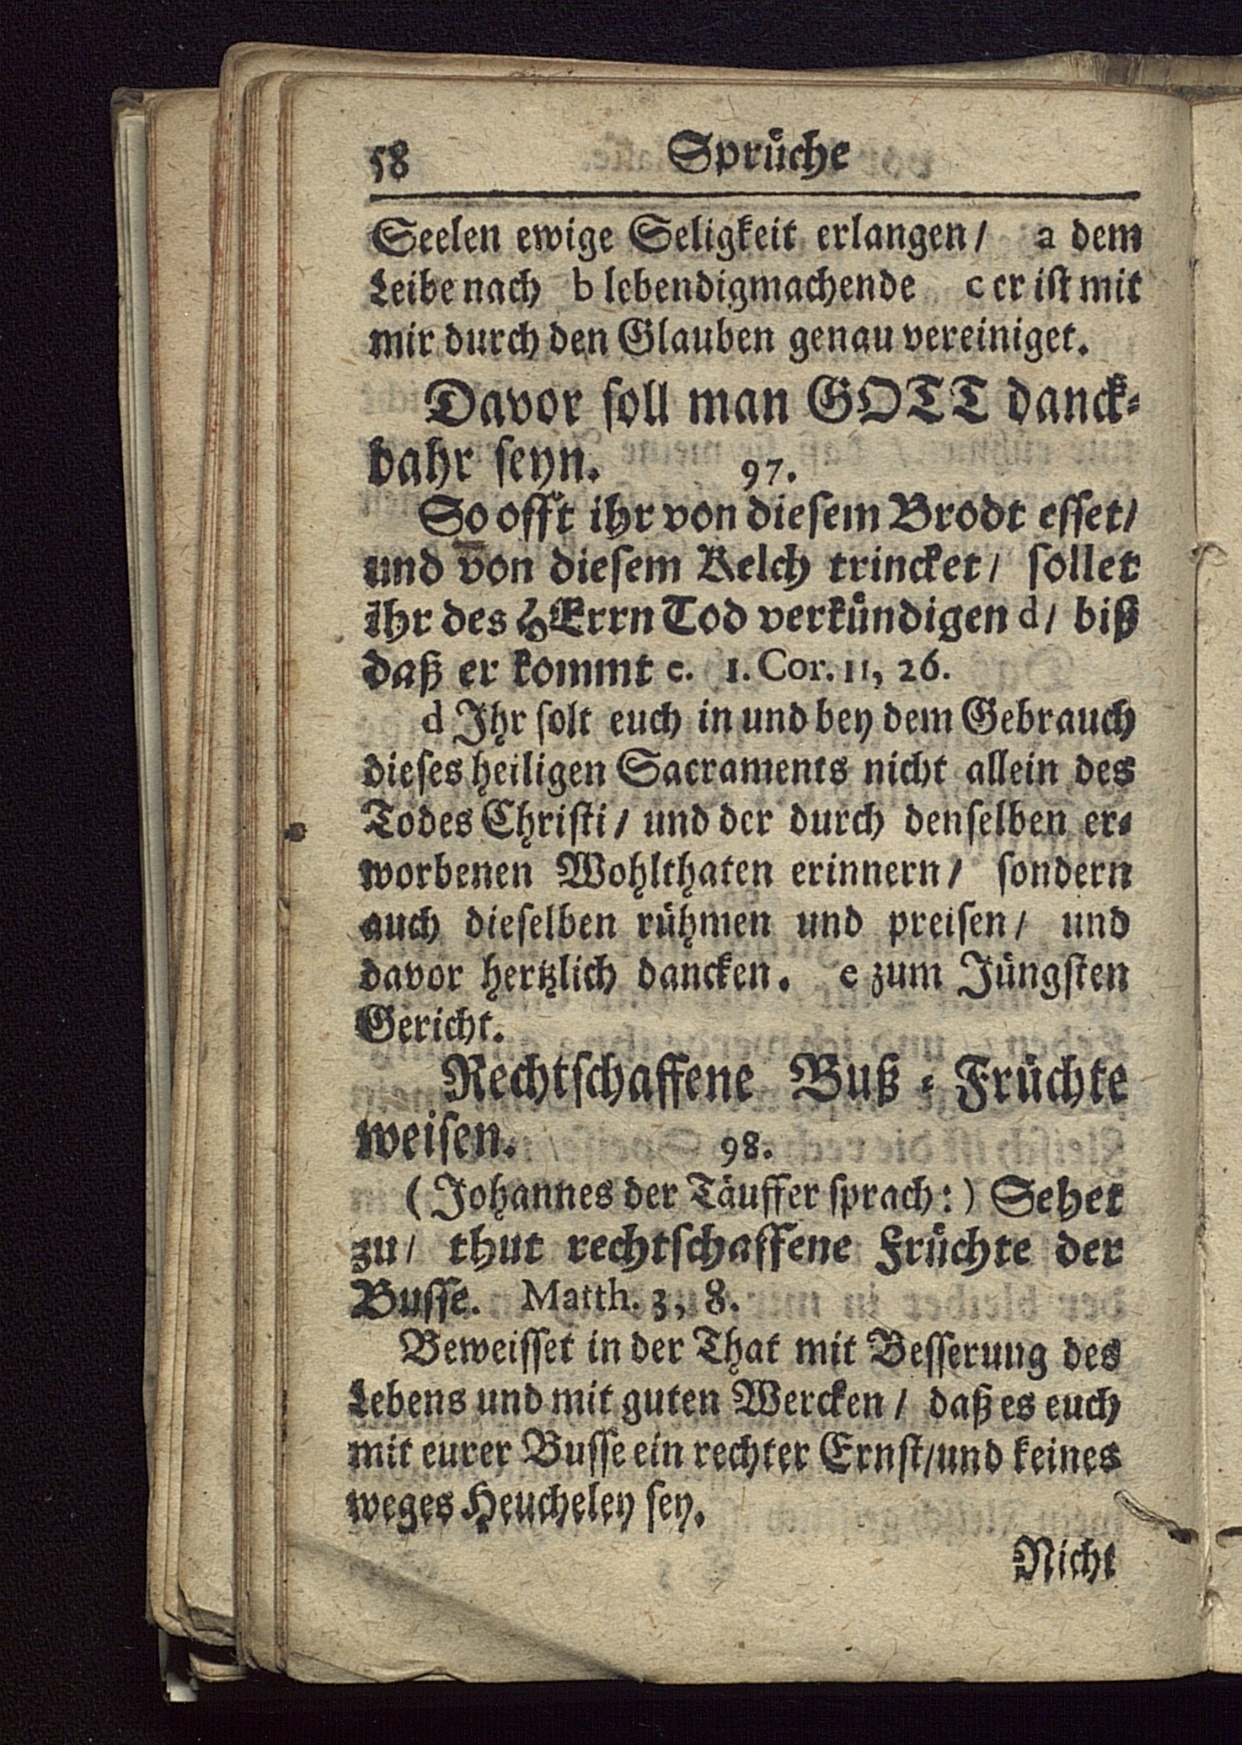 58 Sprüche
Seelen ewige Seligkeit erlangen/ a dem
Leibe nach b lebendigmachende c er ist mit
mir durch den Glauben genau vereiniget.
Davor soll man GOTT danck-
bahr seyn. 97.
So offt ihr von diesem Brodt esset/
und von diesem Kelch trincket/ sollet
ihr des HErrn Tod verkündigen d/ biß
daß er kommt e. 1. Cor. 11, 26.
d Ihr solt euch in und bey dem Gebrauch
dieses heiligen Sacraments nicht allein des
Todes Christi/ und der durch denselben er-
worbenen Wohlthaten erinnern/ sondern
auch dieselben rühmen und preisen/ und
davor hertzlich dancken. e zum Jüngsten
Gericht.
Rechtschaffene Buß-Früchte
weisen. 98.
(Johannes der Täuffer sprach:) Sehet
zu/ thut rechtschaffene Früchte der
Busse. Matth. 3, 8.
Beweisset in der That mit Besserung des
Lebens und mit guten Wercken/ daß es euch
mit eurer Busse ein rechter Ernst/und keines
weges Heucheley sey.
Nicht